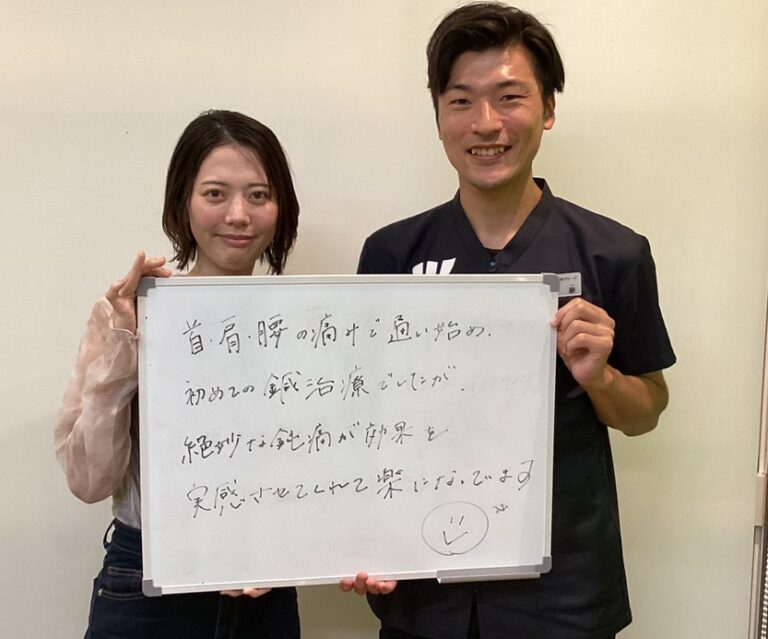 首・肩・腰の痛みで通い始め、
初めての鍼治療でしたが、
絶妙な鈍痛が効果を
実感させてくれて楽になってます